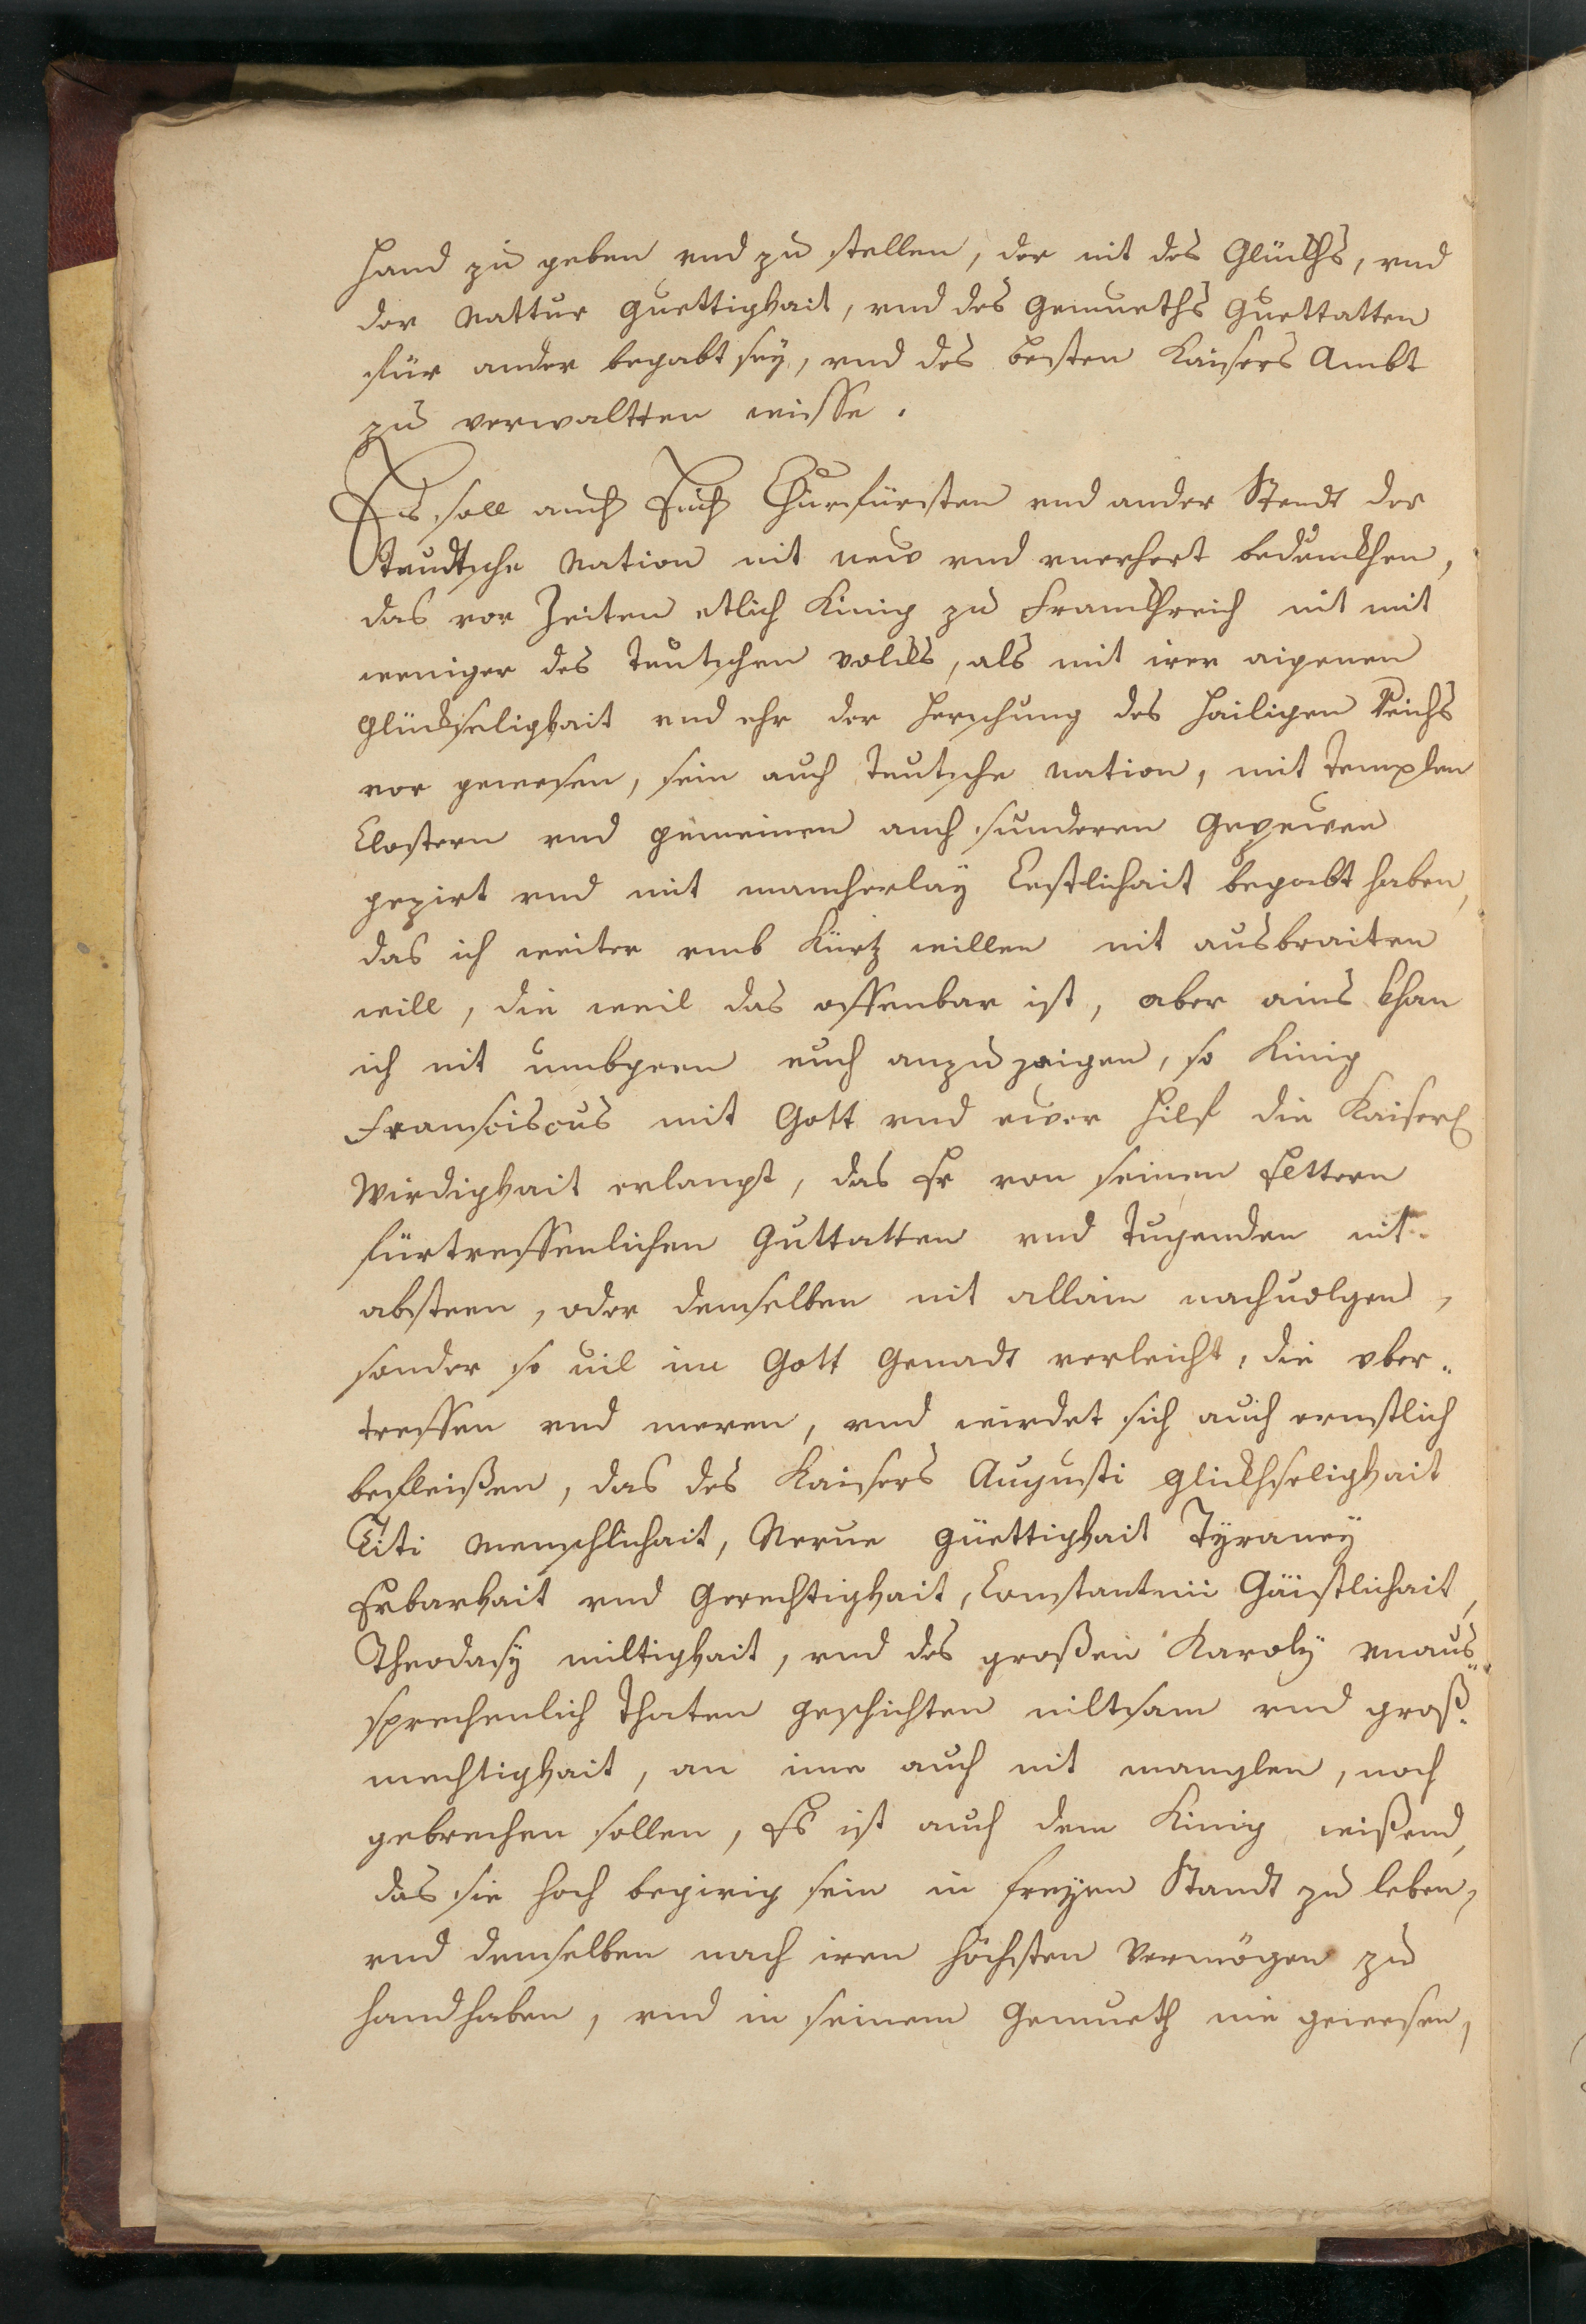 hand zu geben vnd zu stellen, der mit des Glückhs, vnd
der Nattur guettigkait, vnd des Gemueths Guettatten
für ander begabt sey, vnd des besten Kaisers Ambt
zu verwaltten wisse.
Es soll auch Euch Churfürsten vnd ander Stendt der
Teudtsche Nation nit new vnd vnerhert bedunckhen,
das vor Zeiten etlich Kinig zu Franckhreich nit mit
weniger des Teutschen volckhs, als mit irer aigenen
glückseligkait vnd ehr der Herschung des Hailigen Reichs
vor gewesen, sein auch Teutsche Nation, mit Templen
Clostern vnd gemeinen auch sunderen Gepewen
gezirt vnd mit mancherlay Costlichait begabt haben,
das ich weiter vmb Kürtz willen nit ausbraiten
will, die weil das offenbar ist, aber ains khan
ich nit umbgeen euch anzuzaigen, so Kinig
Franciscus mit Gott vnd ewer hilf die Kaiserl
Wirdigkait erlangt, das Er von seinen Eltern
fürtreffenlichen Guttatten vnd Tugenden nit
absteen, oder denselben nit allain nachuolgen,
sonder so uil im Gott Genadt verleicht, die vber-
treffen vnd meren, vnd wirdet sich auch ernstlich
befleißen, das des Kaisers Augusti glickhseligkait
Titi Menschlichait, Nerue güettigkait Tyraney
Erbarkait vnd Gerechtigkait, Constantini Gäistlichait,
Theodosy miltigkait, vnd des großen Karoly vnaus-
sprechenlich Thaten geschichten miltsam vnd groß-
mechtigkait, an ime auch nit manglen, noch
gebrechen sollen, Es ist auch dem Kinig wißend,
das sie hoch begirig sein in freyen Standt zu leben,
vnd denselben nach iren höchsten Vermögen zu
handhaben, vnd in seinem Gemueth nie gewesen,